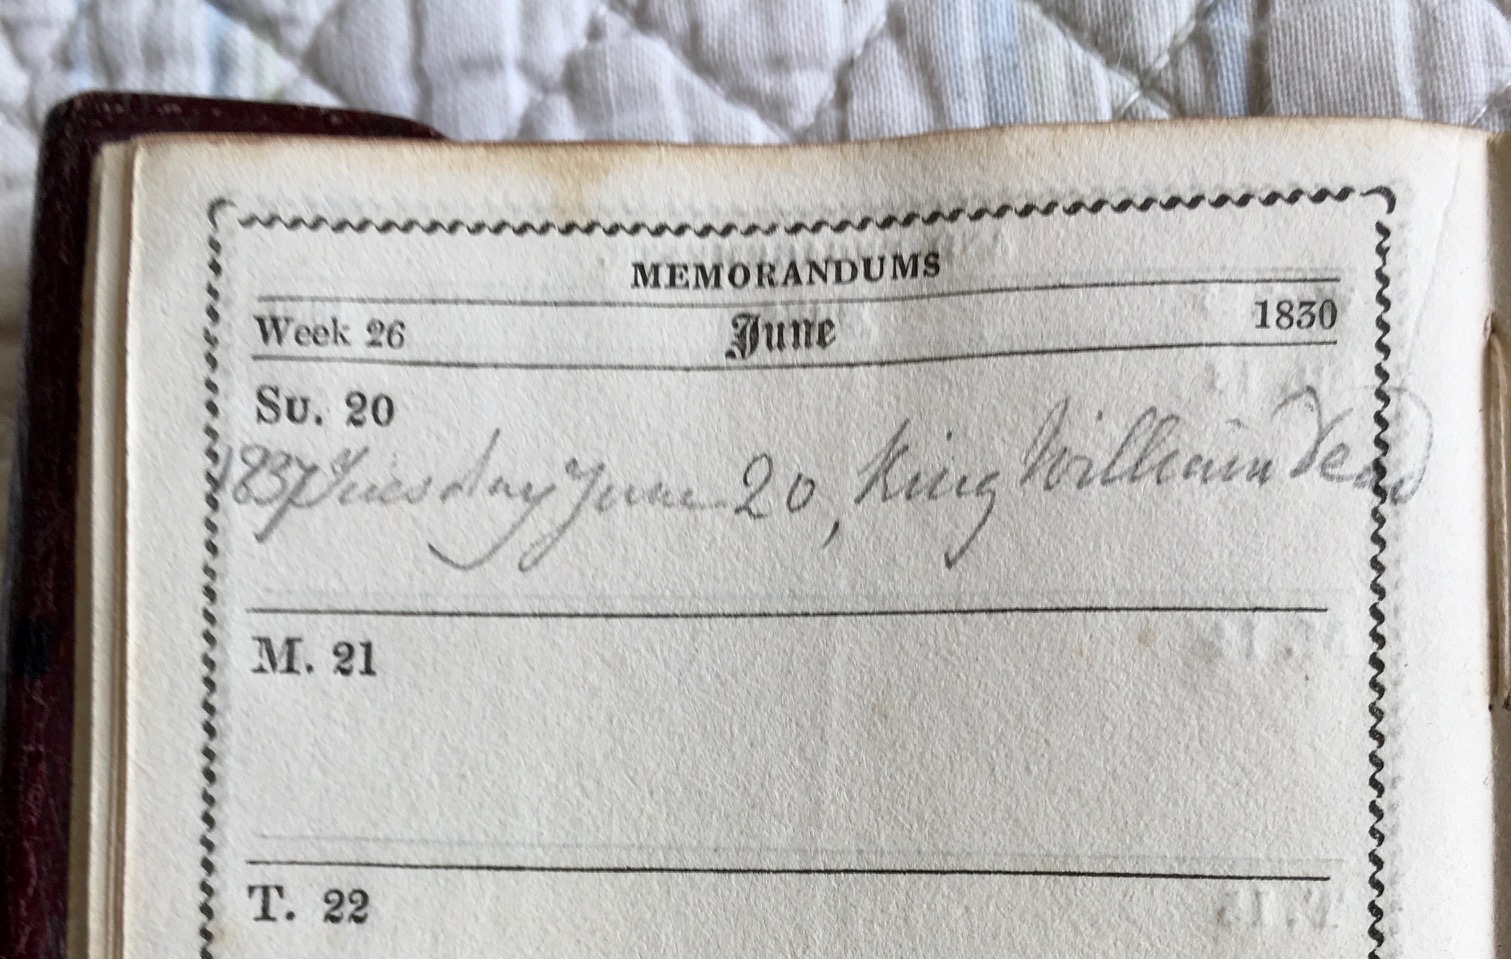 MEMORANDUMS
Week 26 June 1830
Su. 20
1837 Tuesday June 20, King William Dead
M. 21
T. 22